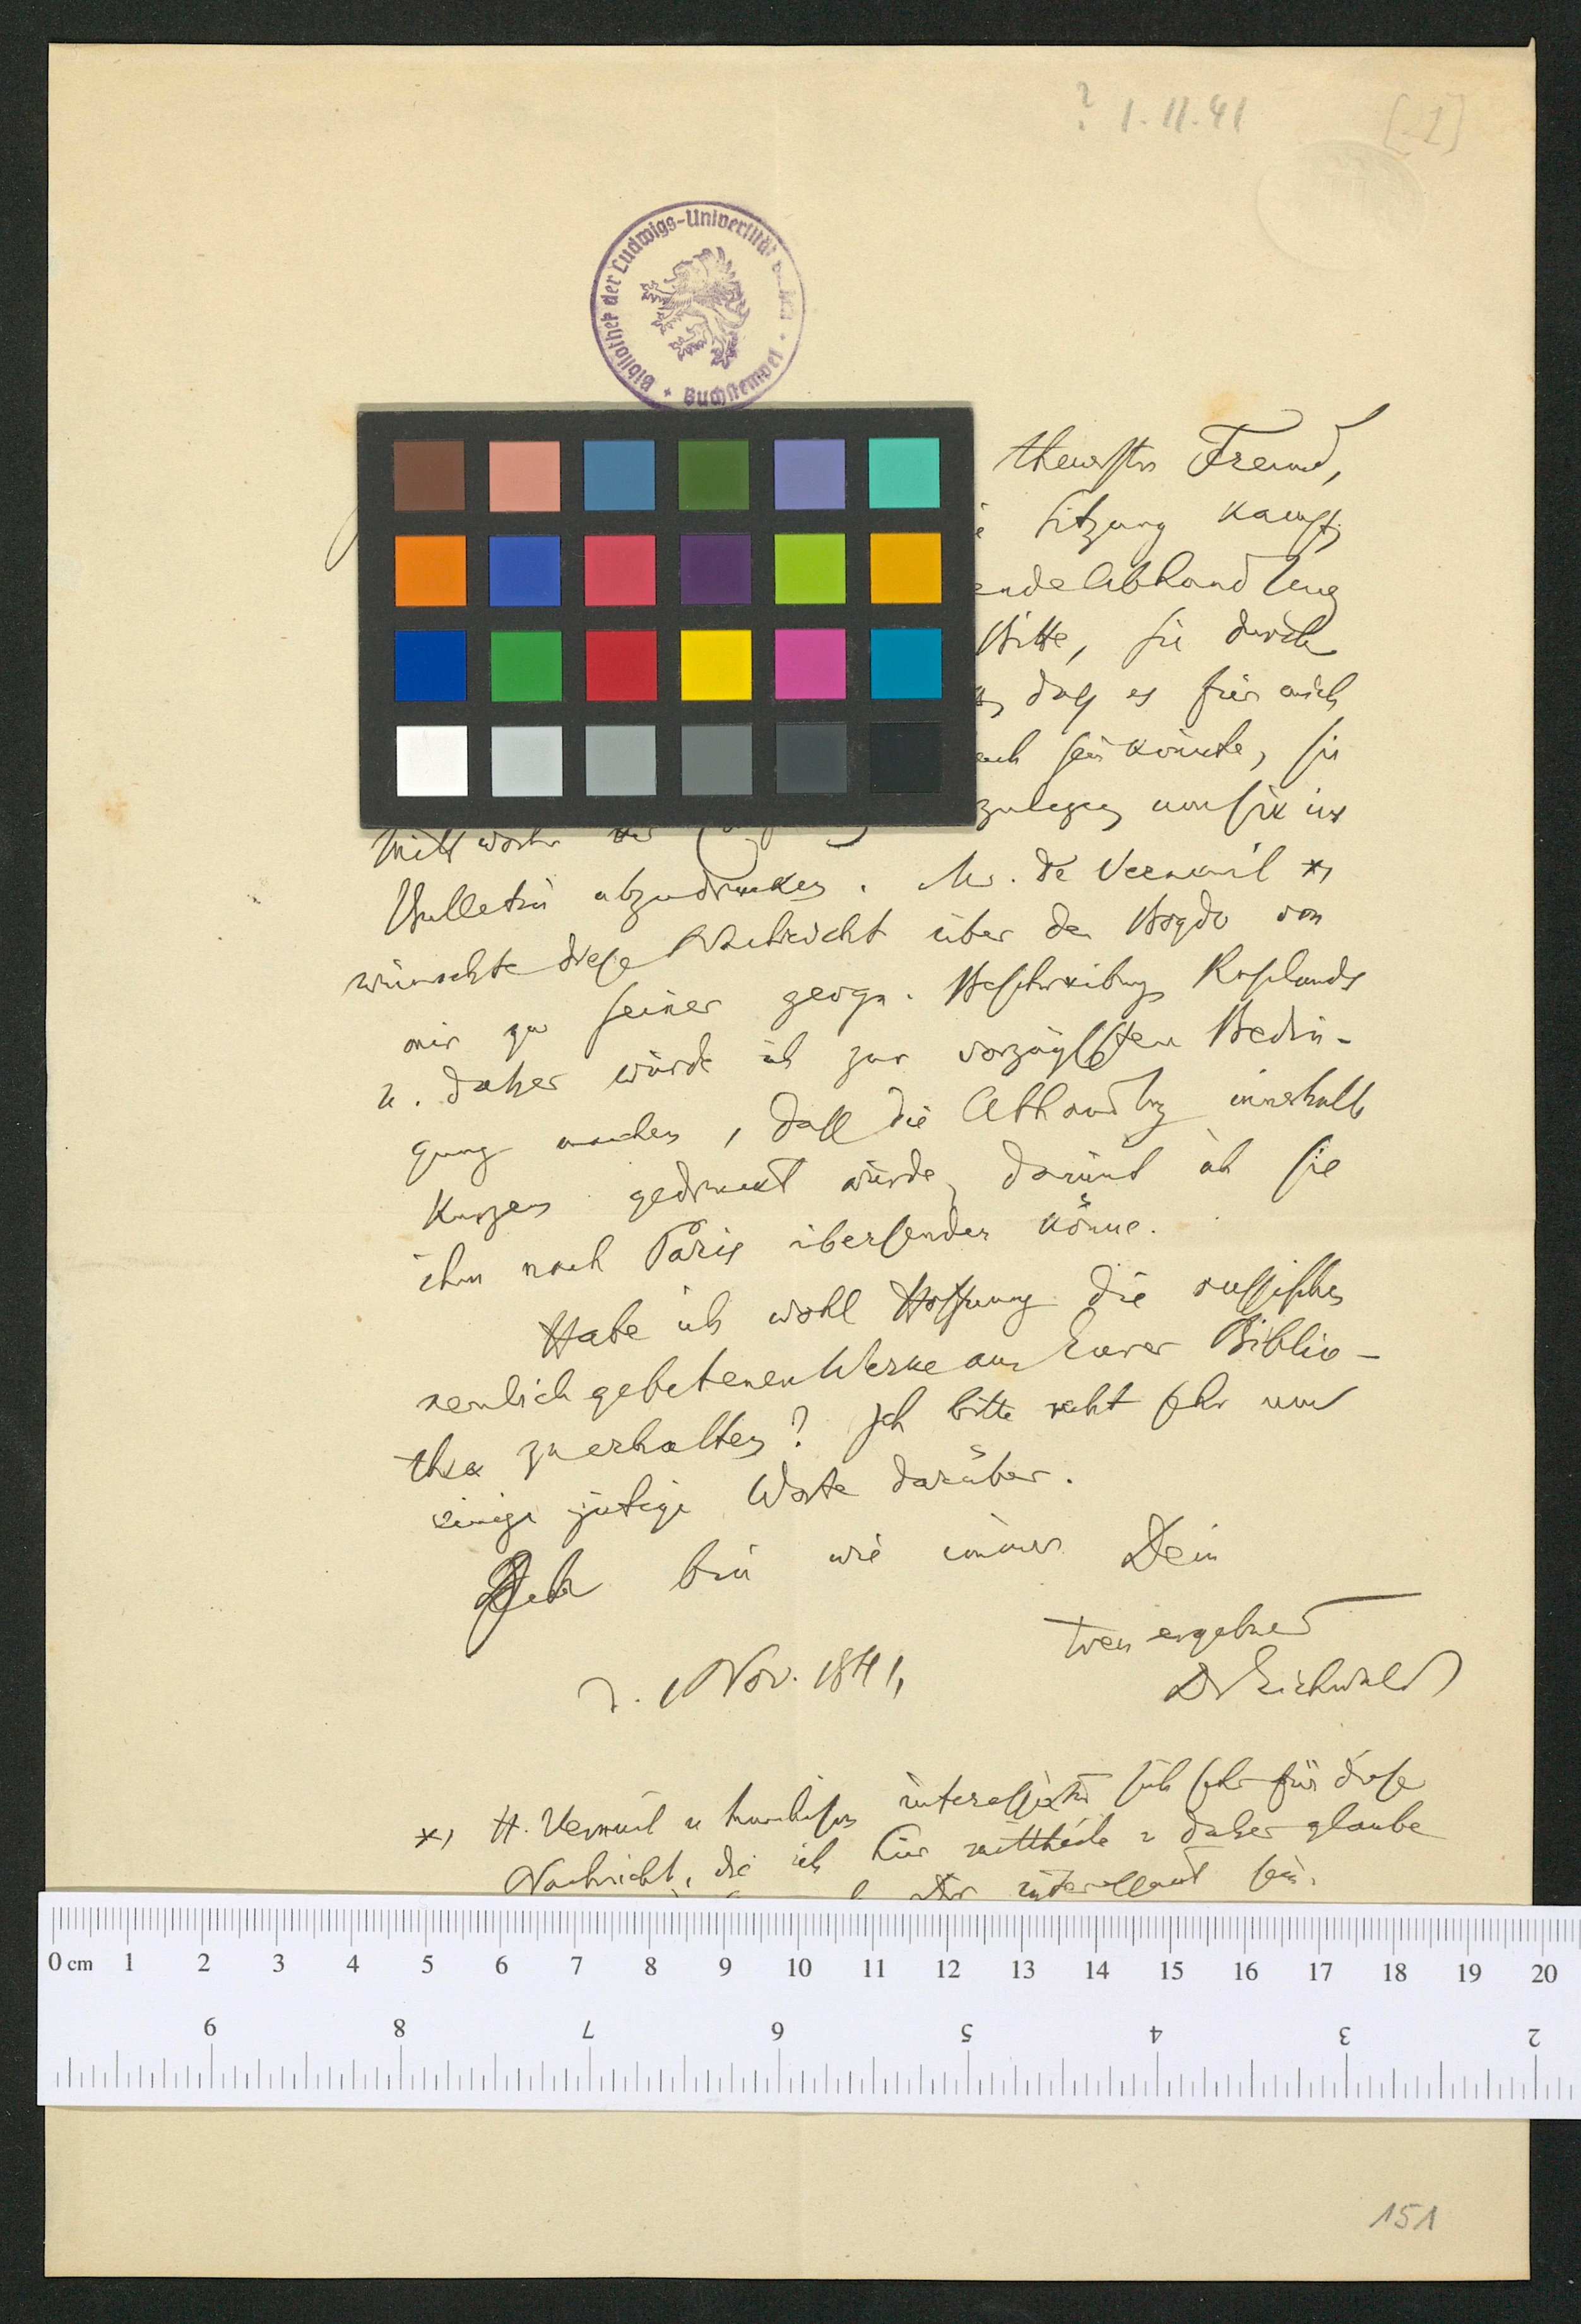 ? 1.11.41
[1]
Bibliothek der Ludwigs-Universität
Buchstempel
theuerster Freund,
Sitzung
ende Abhandlung
Bitte, sie durch
daß es für mich
sein könnte, sie
zulegen um sie ins
Bulletin abzudrucken. Mr. de Verneuil *)
wünschte diese Nachricht über den Bogdo von
mir zu seiner geogn. Beschreibung Rußlands
u. daher würde ich zur vorzüglichsten Bedin-
gung machen, daß die Abhandlung innerhalb
Kurzem gedruckt würde, damit ich sie
ihm nach Paris übersenden könne.
Habe ich wohl Hoffnung die russischen
neulich gebetenen Werke aus Eurer Biblio-
thek zu erhalten? Ich bitte recht sehr um
einige gütige Worte darüber.
Ich bin wie immer Dein
treu ergebner
d. 1 Nov. 1841, Dr Eichwald
*) H. Verneuil u. sich sehr für diese
Nachricht, die ich hier mittheile u daher glaube
interessant sein.
0 cm 1 2 3 4 5 6 7 8 9 10 11 12 13 14 15 16 17 18 19 20
9 8 7 6 5 4 3 2
151